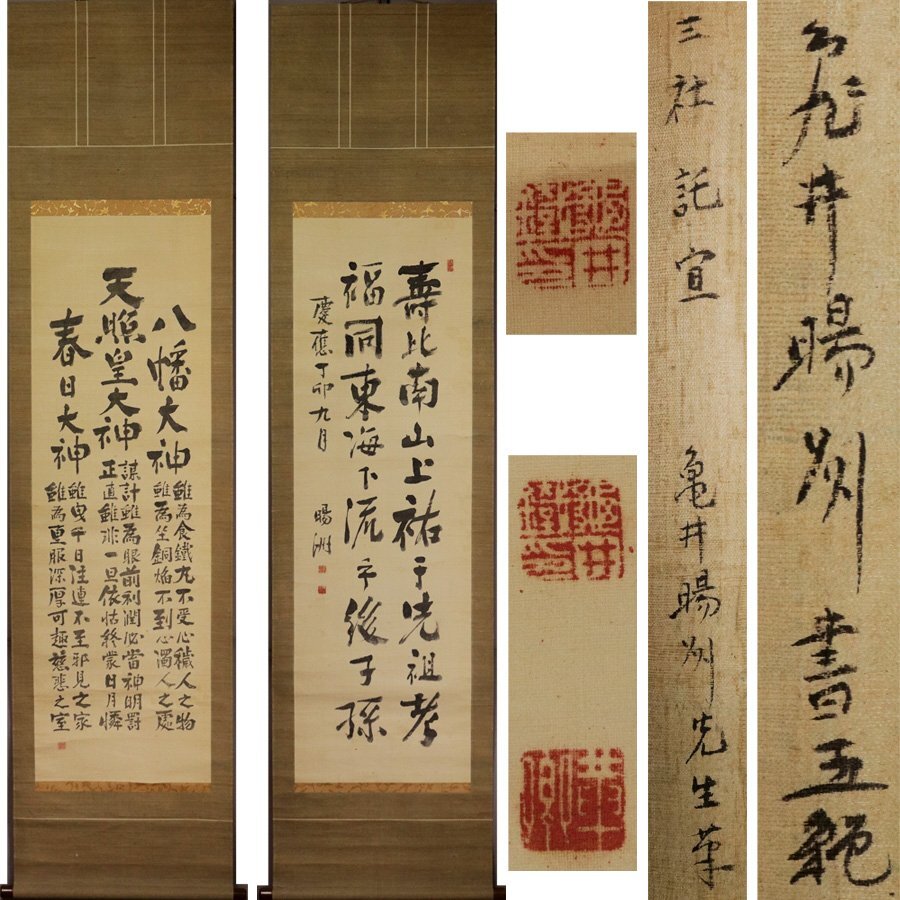 八幡大神
雖為食鐵丸不受心穢人之物
雖為坐銅焰不到心濁人之處
天照皇大神
謀計雖為眼前利潤必當神明罰
正直雖非一旦依怙終蒙日月憐
春日大神
雖曳千日注連不至邪見之家
雖為重服深厚可趣慈悲之室
壽比南山上祐于先祖考
福同東海下流于後子孫
慶應丁卯九月 暘洲
三社託宣 亀井暘洲先生筆
亀井暘洲書五